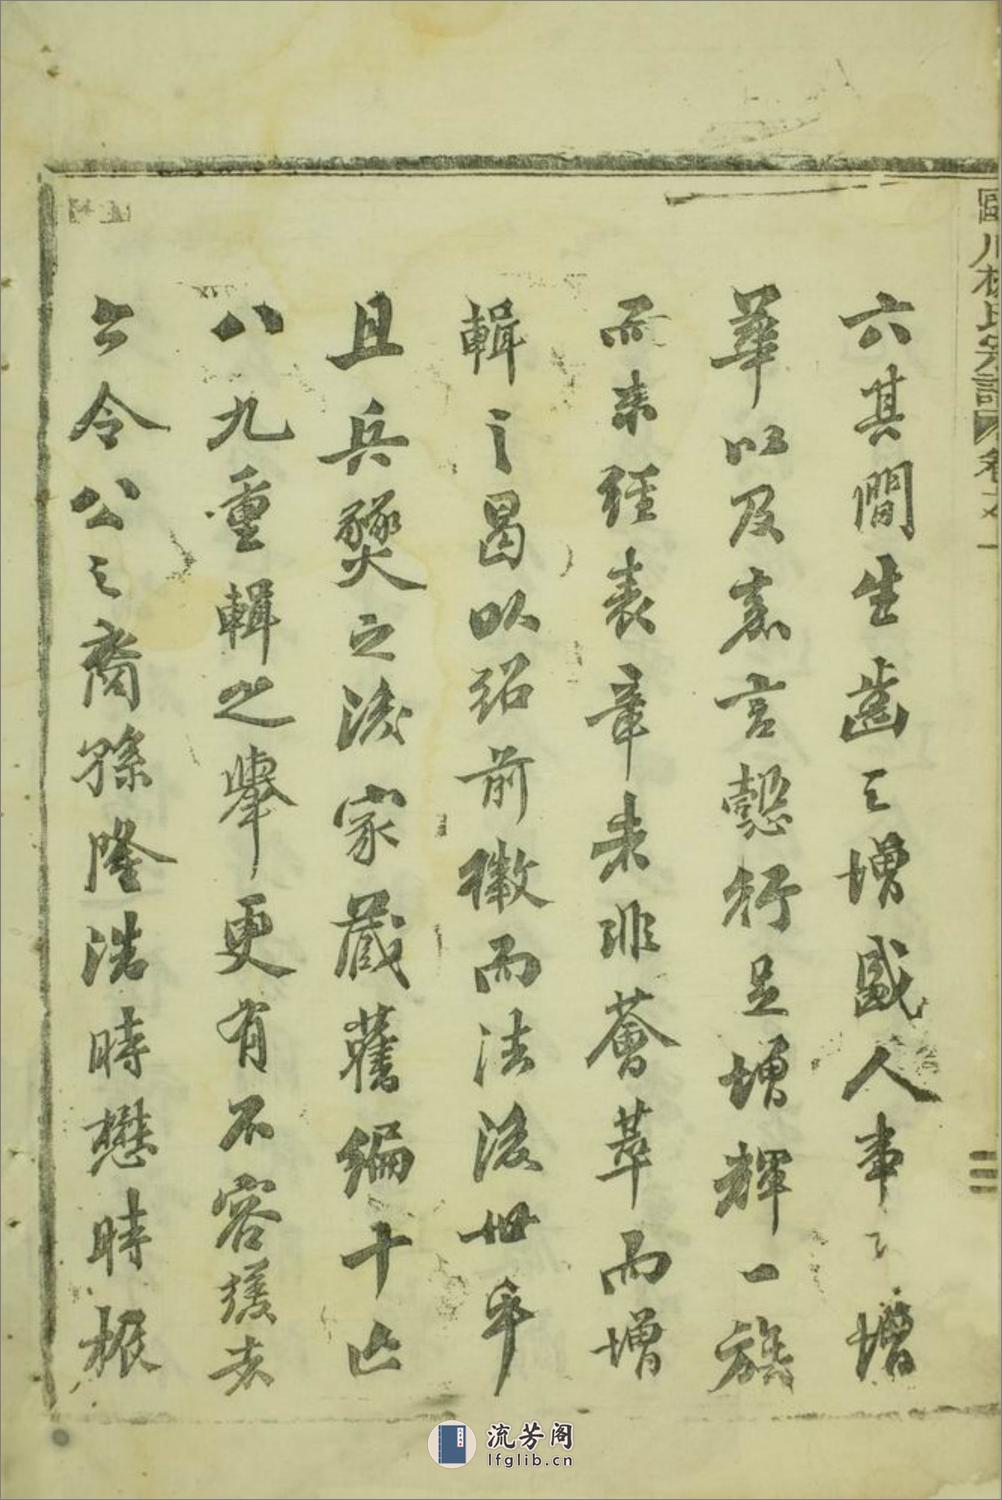 六其間生齒之增盛人事之增
華以及嘉言懿行足增輝一族
而未經表章未非薈萃而增
輯之曷以紹前徽而法後世乎
且兵燹之後家藏舊編十亡
八九重輯之舉更有不容緩者
令公之裔孫隆浩時懋時振
川林氏宗譜 卷之一
三
流芳阁
lfglib.cn